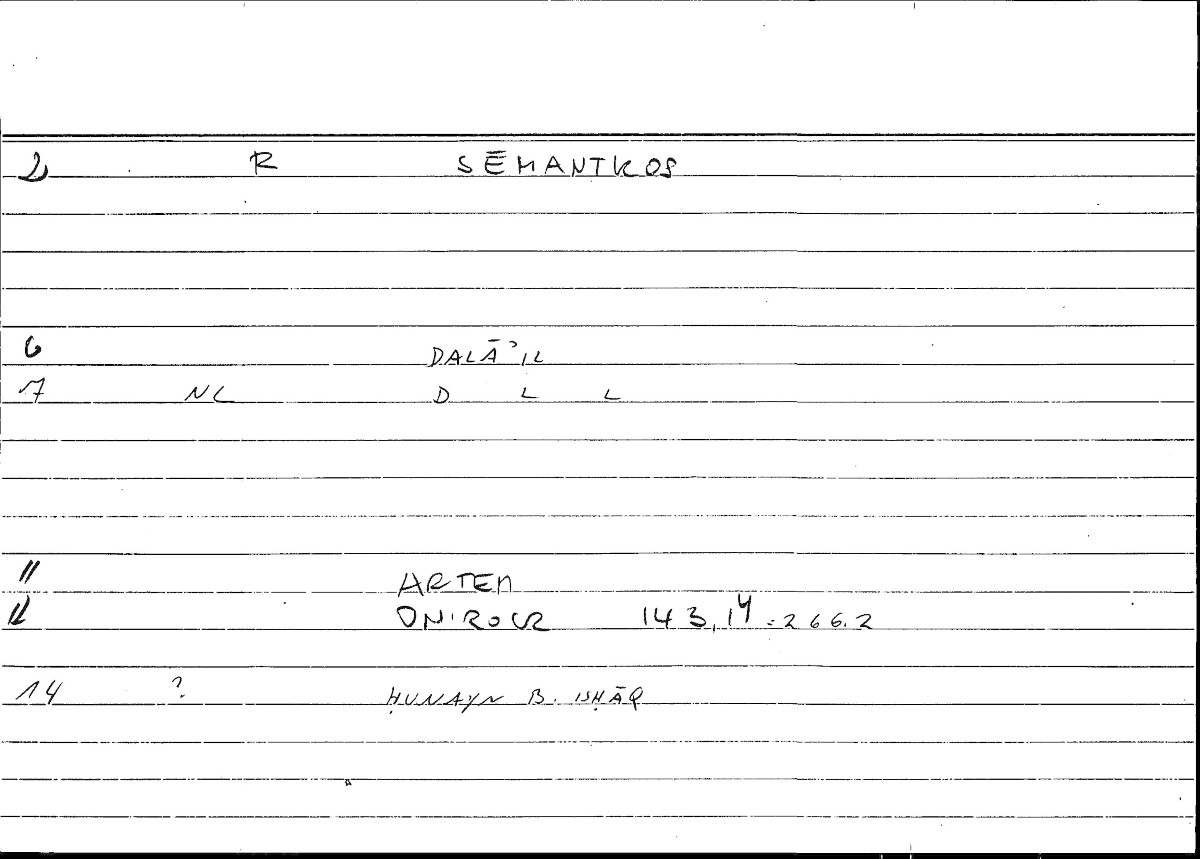 2 R SĒMANTKOS
6 DALĀʾIL
7 NL D L L
11 ARTEM
12 ONIROCR 143,14 = 266.2
14 ? ḤUNAYN B. ISḤĀQ